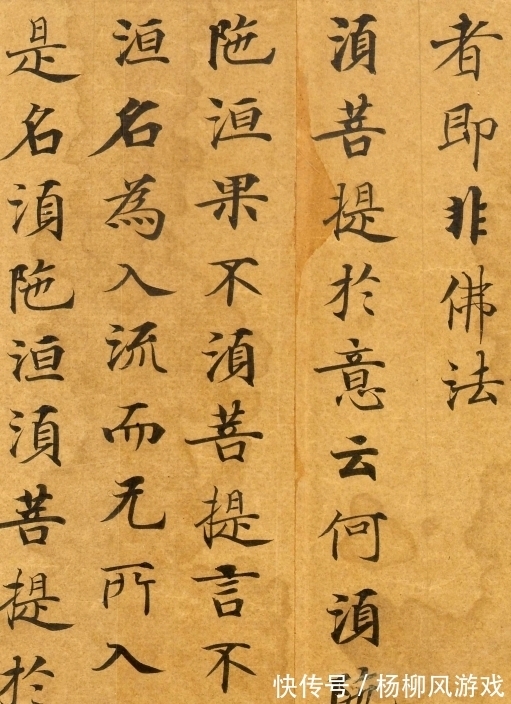 者即非佛法
湏菩提於意云何湏
陁洹果不湏菩提言不
洹名為入流而无所入
是名湏陁洹湏菩提於
快传号/杨柳风游戏